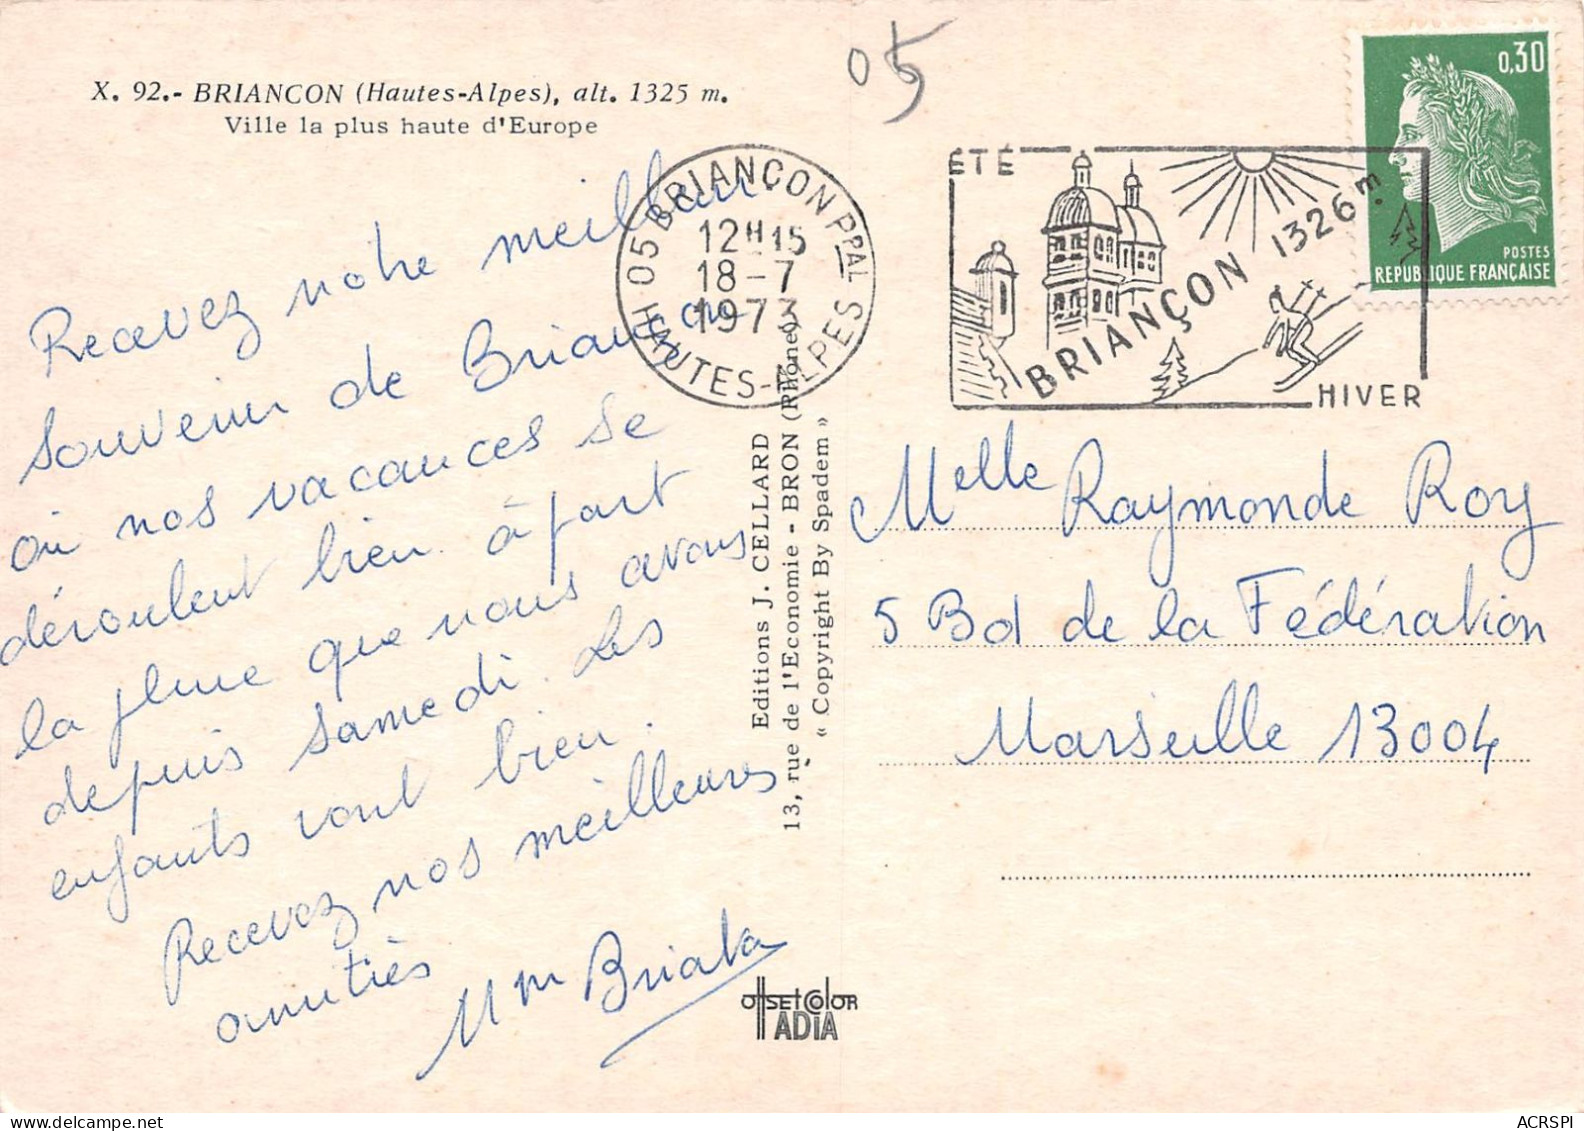 X. 92.- BRIANCON (Hautes-Alpes), alt. 1325 m.
Ville la plus haute d'Europe
05
Recevez notre meilleur
souvenir de Briançon
où nos vacances se
déroulent bien à part
la pluie que nous avons
depuis samedi. Les
enfants vont bien.
Recevez nos meilleures
amitiés
Mm Briata
05 BRIANÇON PPAL
12H15
18-7
1973
HAUTES-ALPES
ÉTÉ
BRIANÇON 1326 m.
HIVER
0,30
POSTES
REPUBLIQUE FRANÇAISE
Editions J. CELLARD
13, rue de l'Economie - BRON (Rhône)
« Copyright By Spadem »
Melle Raymonde Roy
5 Bd de la Fédération
Marseille 13004
OFFSET COLOR
IADIA
ACRSPI